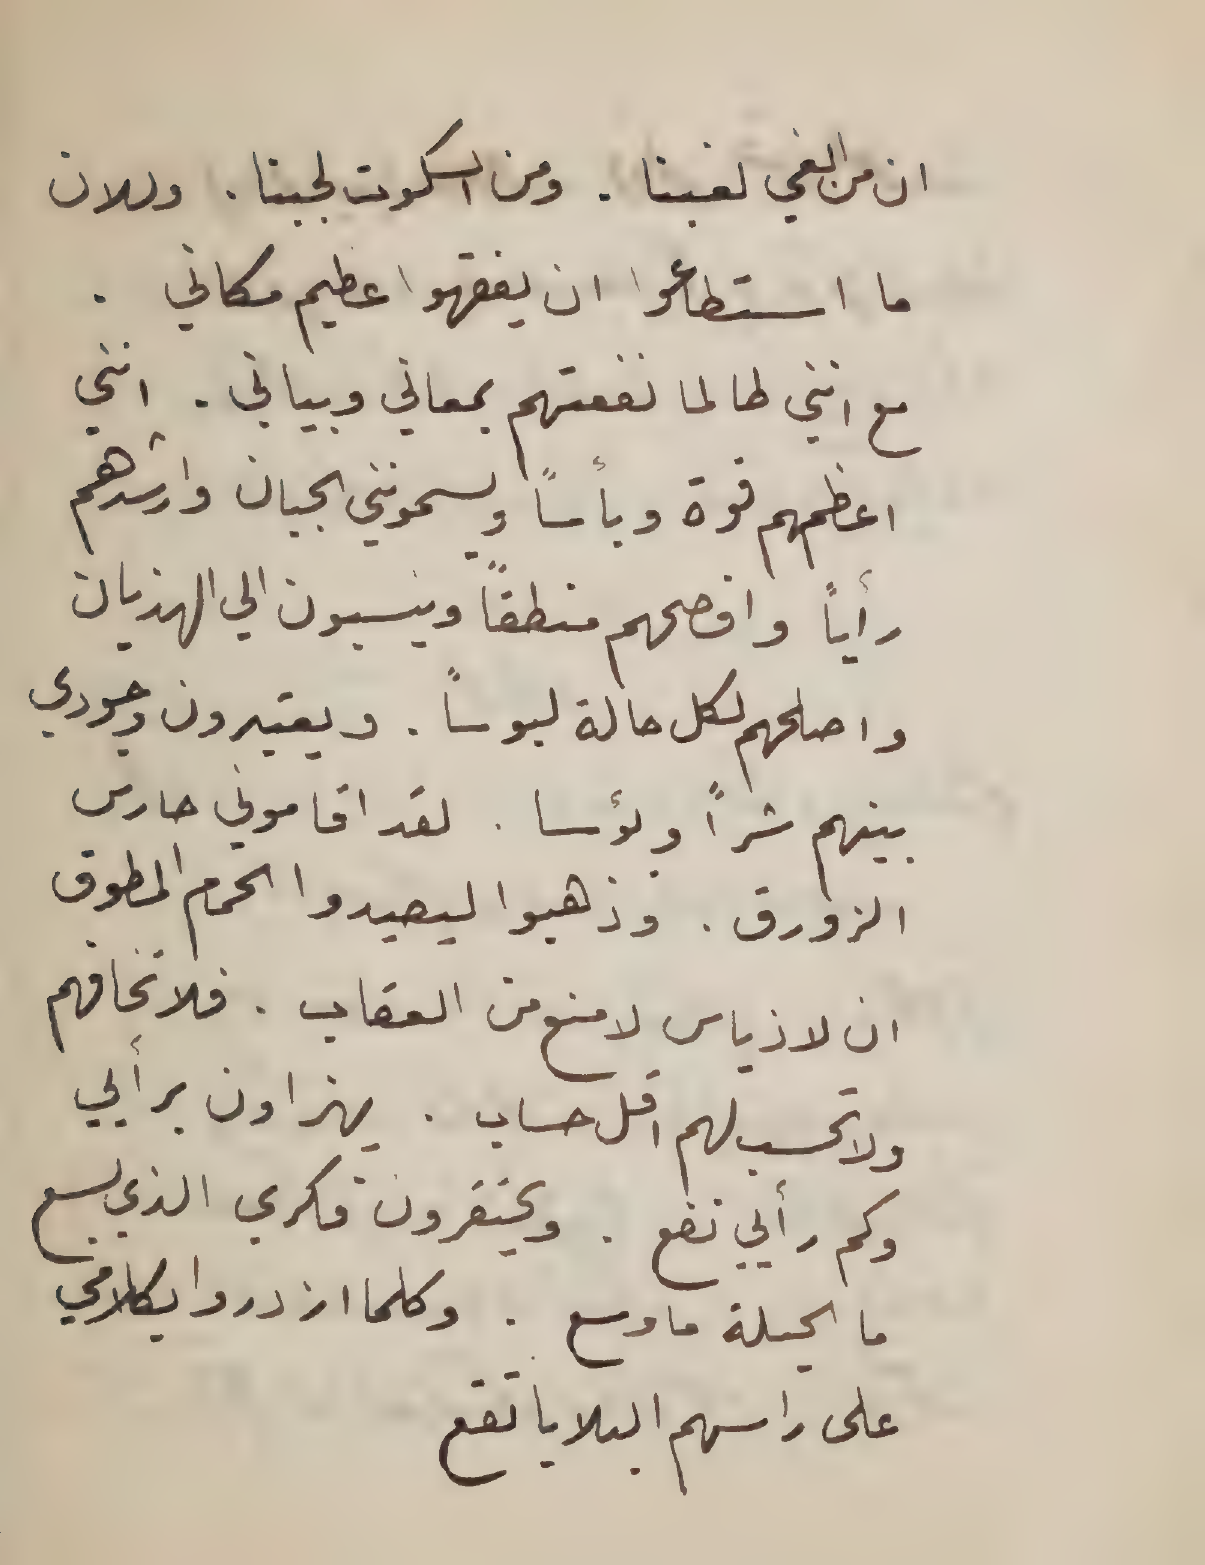 ان من الغي لغبنا . ومن السكوت لجبنا . وللان
ما استطاعوا ان يفقهوا عظيم مكاني .
مع انني طالما نفعتهم بمعاني وبياني . انني
اعظمهم قوة وبأساً ويسمونني الجبان وارشدهم
رأياً وافصحهم منطقاً وينسبون الي الهذيان
واصلحهم لكل حالة لبوساً . ويعتبرون وجودي
بينهم شراً وبؤسا . لقد اقاموني حارس
الزورق . وذهبوا ليصيدوا الحمام المطوق
ان لاذ ياس لا منع من العقاب . فلا تخافهم
ولا تحسب لهم اقل حساب . يهزاون برأيي
وكم رأيي نفع . ويحتقرون فكري الذي يسع
ما الحيلة ما وسع . وكلما ازدروا بكلامي
على راسهم البلايا تقع